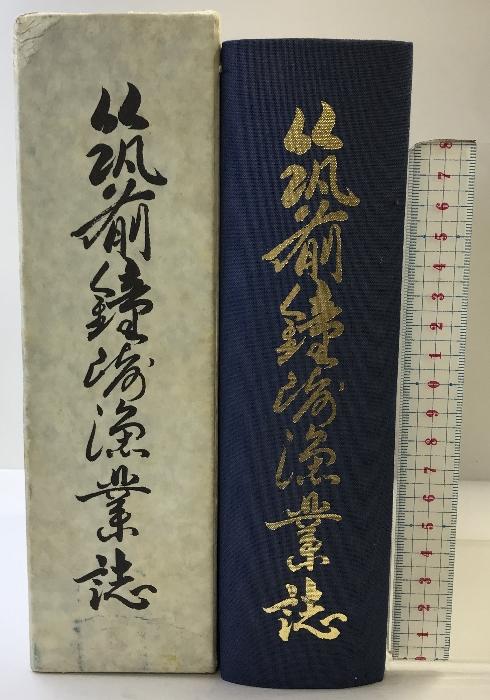 筑前鐘崎漁業誌
筑前鐘崎漁業誌
8
7
6
5
4
3
2
1
0
9
8
7
6
5
4
3
2
1
0